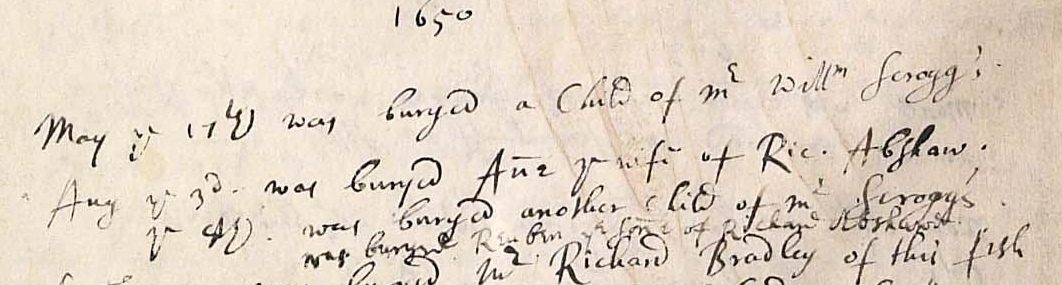 1650
May ye 17th was buryed a Child of mr Willm Scrogg's.
Aug ye 3d. was buryed Ann ye wife of Ric. Abshaw.
ye 4th. was buryed another Child of mr Scrogg's.
was buryed Reuben ye sonne of Richard Abshawe
buryed mr Richard Bradley of this